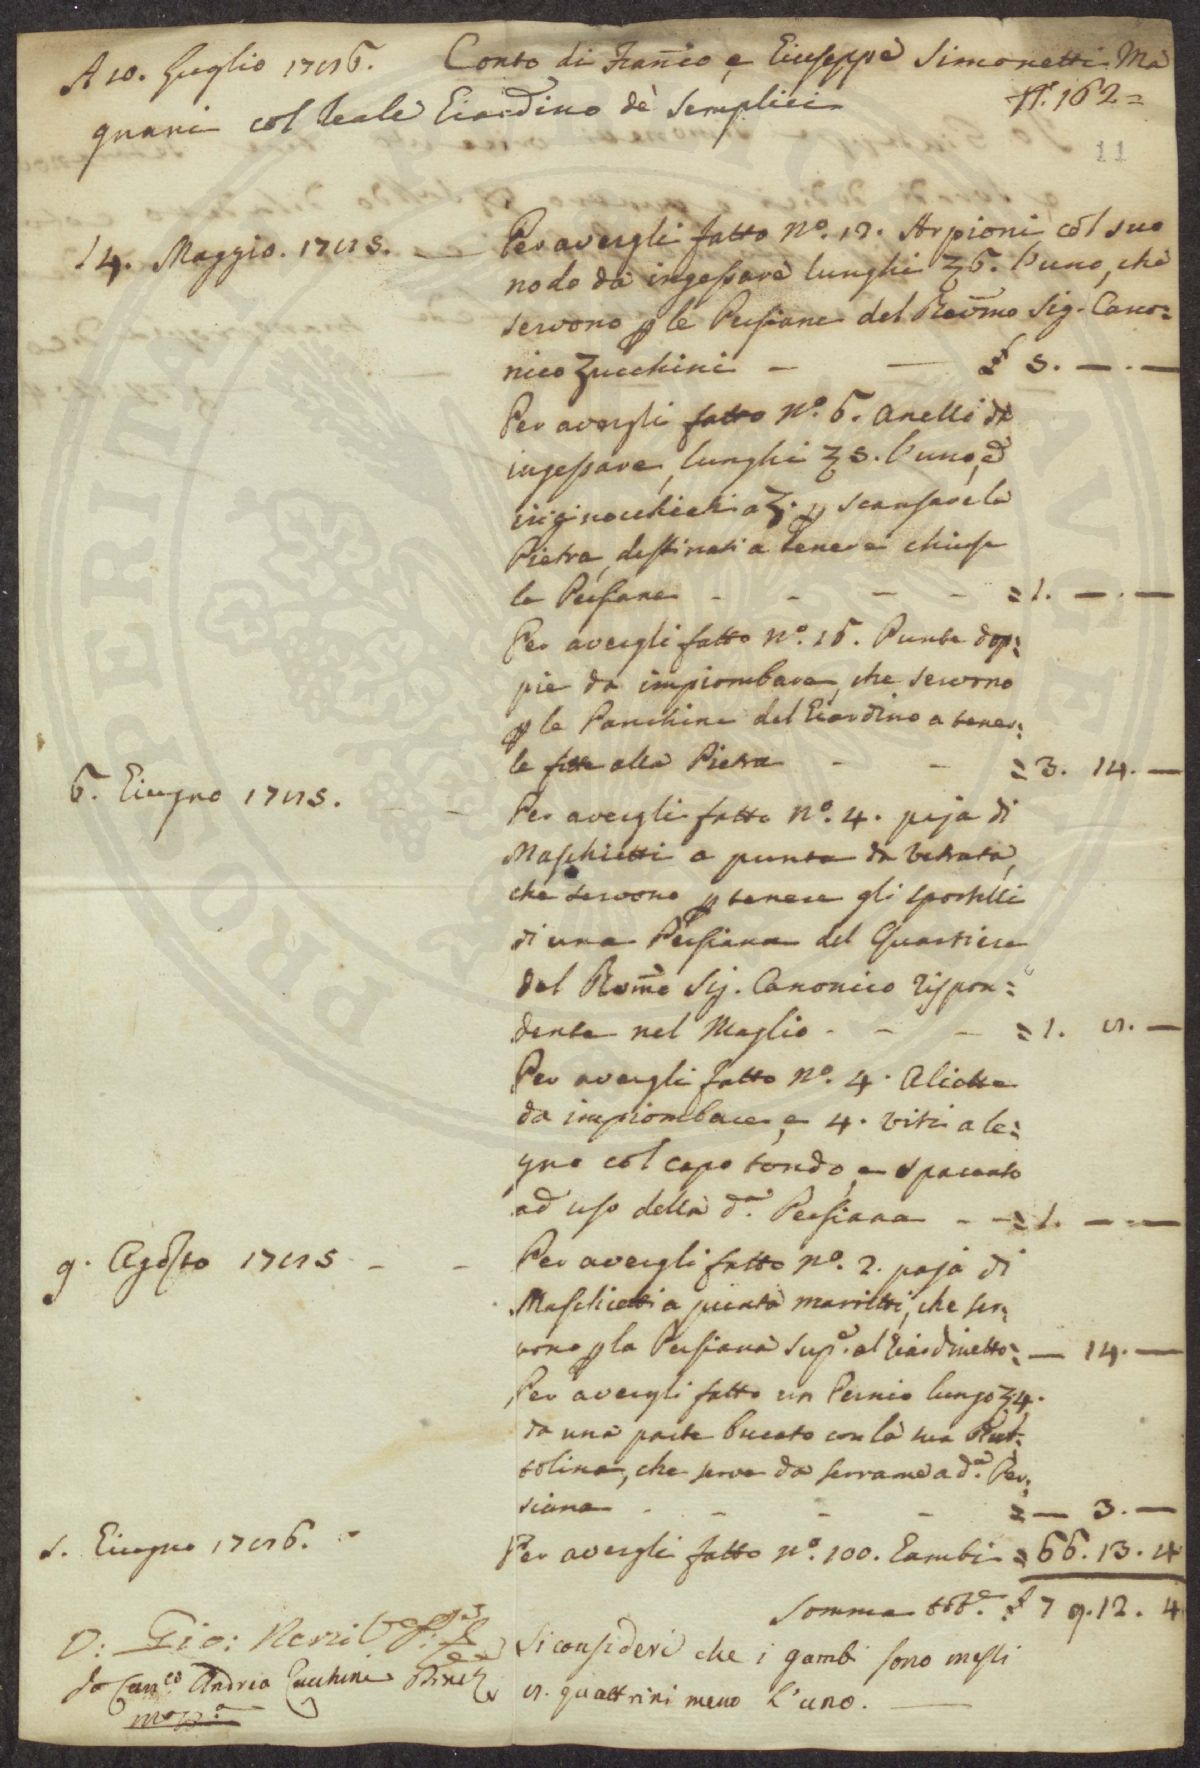 A 10. Luglio 1786. Conto di Fran̄co, e Giuseppe Simonetti Ma
gnani col Reale Giardino de' Semplici No. 162=
11
14. Maggio. 1785. — Per avergli fatto No. 12. Arpioni col suo
nodo da ingessare lunghi ʒ 6. l'uno, che
servono p le Persiane del Rev̄mo Sig. Cano=
nico Zucchini — — £ 5. — . —
Per avergli fatto No. 6. Anelli da
ingessare, lunghi ʒ 5. l'uno, ed
inginocchiati a ʒ. p scansare la
Pietra, destinati a tenere chiuse
le Persiane - - - - = 1. — . —
Per avergli fatto No. 16. Punte dop=
pie da impiombare, che servono
p le Panchine del Giardino a tener=
le fitte alla Pietra - - = 3. 14. —
6. Giugno 1785. - - Per avergli fatto No. 4. paja di
Maschietti a punta da Vetrata,
che servono p tenere gli sportelli
di una Persiana del Quartiere
del Rev̄mo Sig. Canonico rispon=
dente nel Maglio - - - = 1. 8. —
Per avergli fatto No. 4. Aliotte
da impiombare, e 4. viti a le=
gno col capo tondo, e spaccato
ad uso della da. Persiana - - = 1. — . —
9. Agosto 1785 - - Per avergli fatto No. 2. paja di
Maschietti a punta mavietti, che ser=
vono p la Persiana supe. al Giardinetto = — 14. —
Per avergli fatto un Pernio lungo ʒ 4.
da una parte bucato con la sua
tolina, che serve da serrame a da. Per=
siana - - - - = — 3. —
1. Giugno 1786. - Per avergli fatto No. 100. Gambi = 66. 13. 4
Somma tote. £ 79. 12. 4
D: Gio:
Io Canco Andrea Zucchini
mo ppa
Si consideri che i gambi sono messi
8. quattrini meno l'uno. —